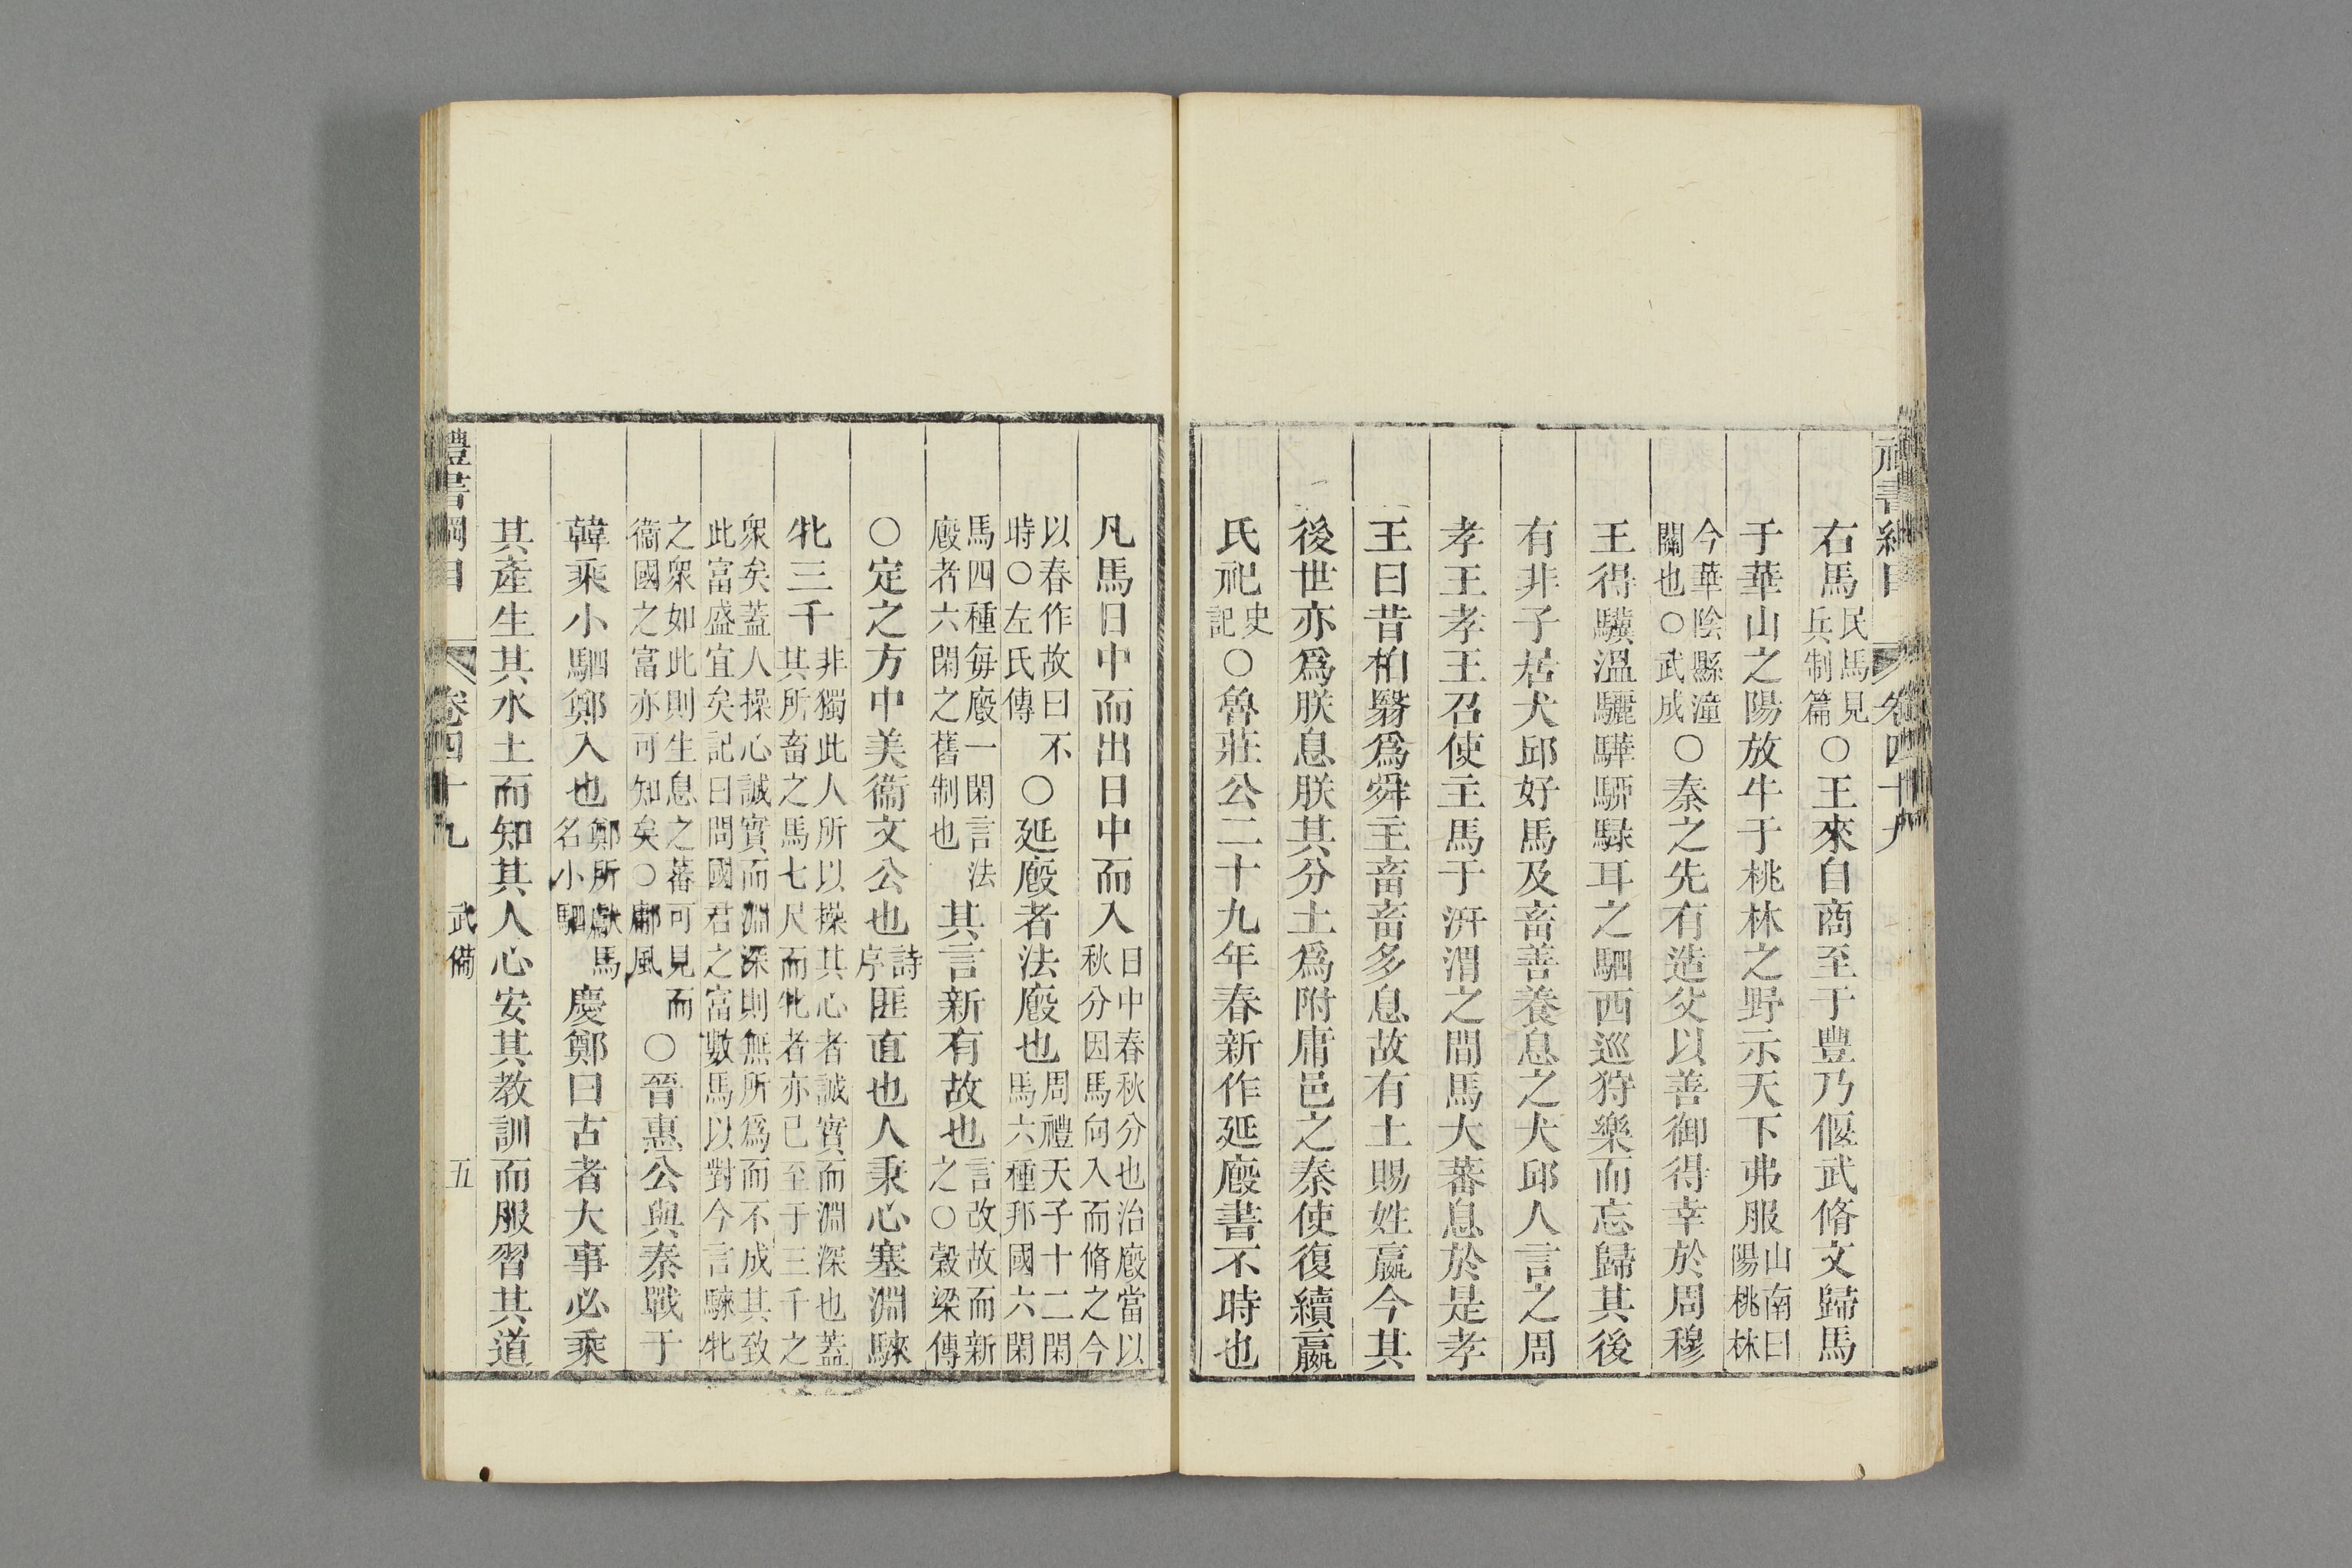 右馬民馬見兵制篇○王來自商至于豐乃偃武脩文歸馬
于華山之陽放牛于桃林之野示天下弗服山南曰陽桃林
今華陰縣潼關也○武成○秦之先有造父以善御得幸於周穆
王得驥溫驪驊騮騄耳之駟西巡狩樂而忘歸其後
有非子居犬邱好馬及畜善養息之犬邱人言之周
孝王孝王召使主馬于汧渭之間馬大蕃息於是孝
王曰昔柏翳爲舜主畜畜多息故有土賜姓嬴今其
後世亦爲朕息朕其分土爲附庸邑之秦使復續嬴
氏祀史記○魯莊公二十九年春新作延廏書不時也
凡馬日中而出日中而入日中春秋分也治廏當以秋分因馬向入而脩之今
以春作故曰不時○左氏傳○延廏者法廏也周禮天子十二閑馬六種邦國六閑
馬四種每廏一閑言法廏者六閑之舊制也其言新有故也言改故而新之○穀梁傳
○定之方中美衞文公也詩序匪直也人秉心塞淵騋
牝三千非獨此人所以操其心者誠實而淵深也蓋其所畜之馬七尺而牝者亦已至于三千之
衆矣蓋人操心誠實而淵深則無所爲而不成其致此富盛宜矣記曰問國君之富數馬以對今言騋牝
之衆如此則生息之蕃可見而衞國之富亦可知矣○鄘風○晉惠公與秦戰于
韓乘小駟鄭入也鄭所獻馬名小駟慶鄭曰古者大事必乘
其產生其水土而知其人心安其教訓而服習其道
禮書綱目 卷四十九 武備 五